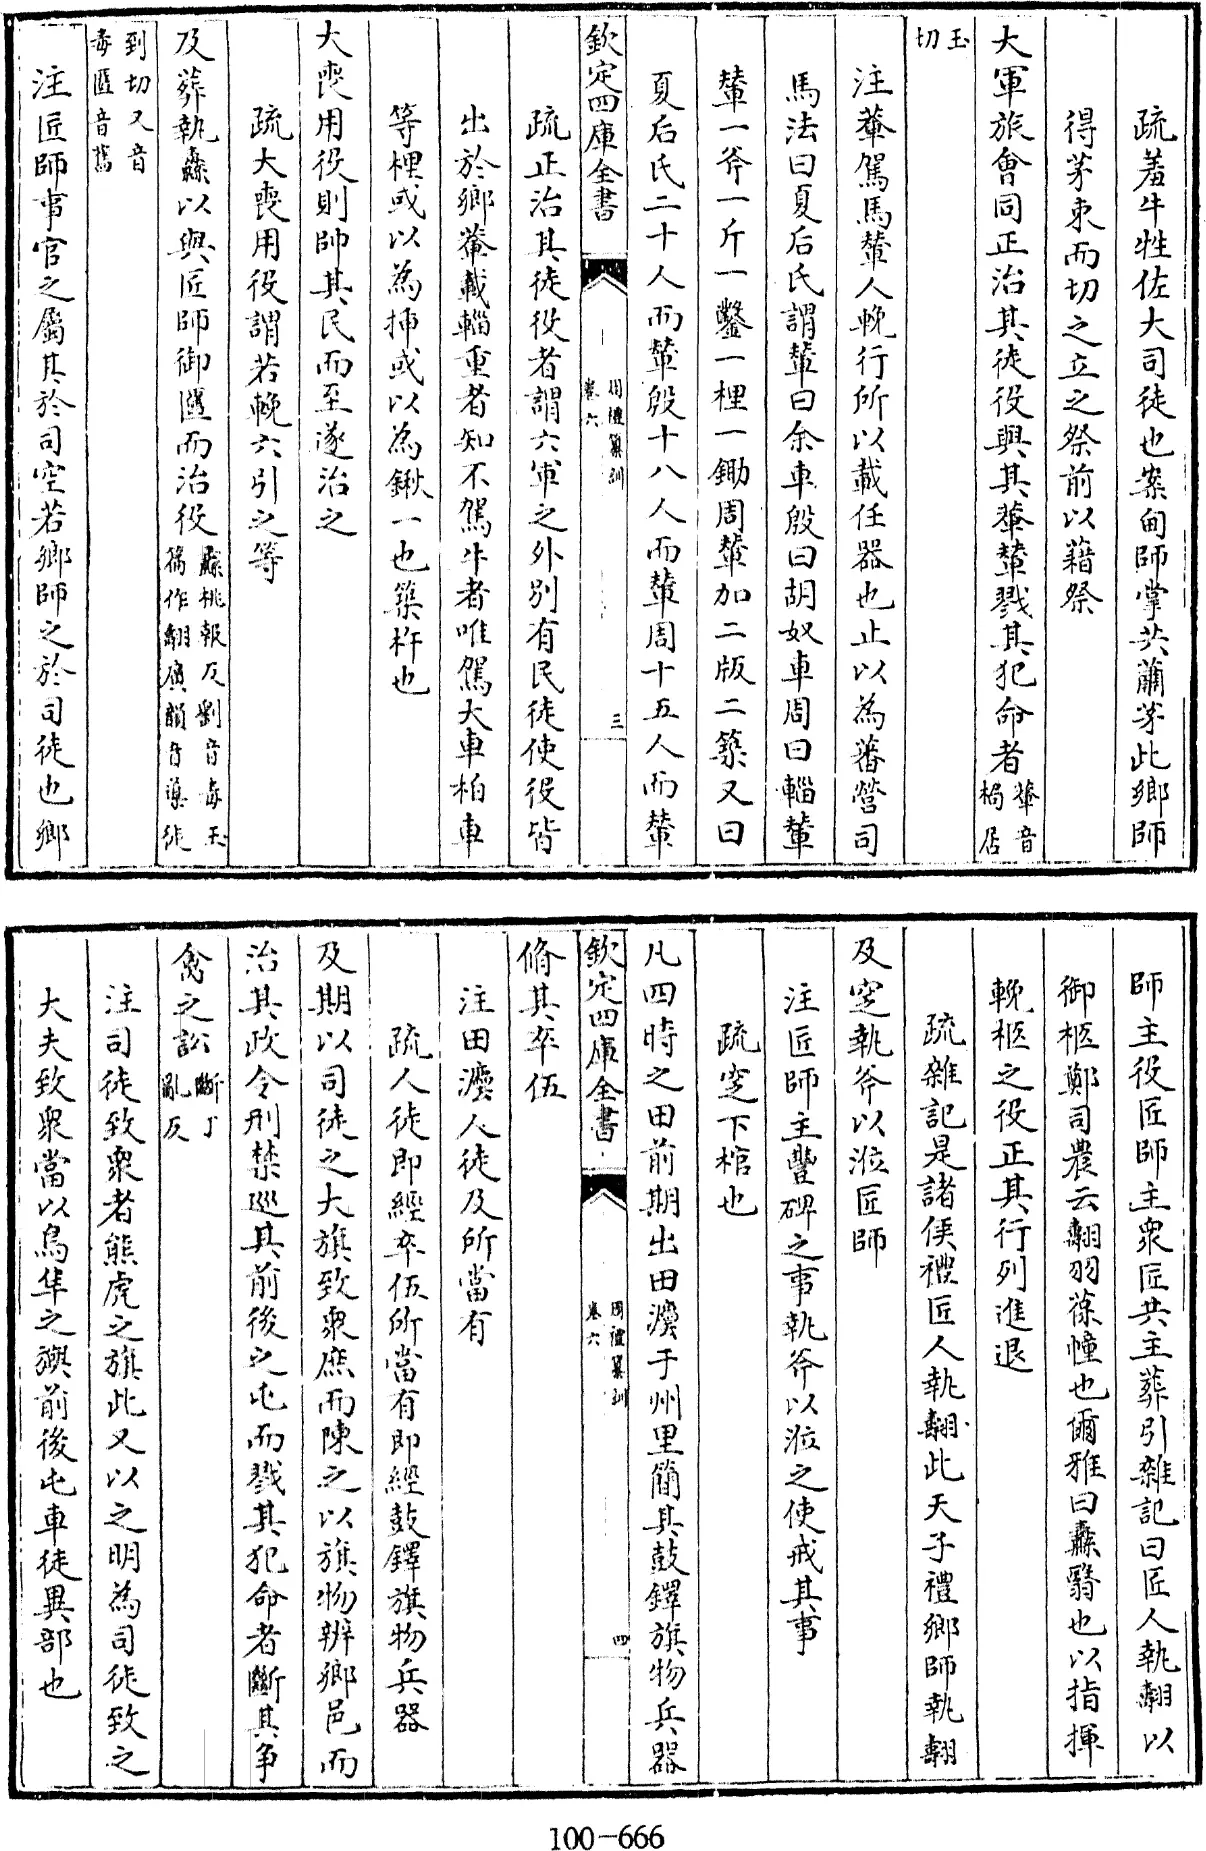 疏羞牛牲佐大司徒也案甸師掌共蕭茅此鄉師
得茅束而切之立之祭前以藉祭
大軍旅會同正治其徒役與其輂輦戮其犯命者輂音梮居
玉切
注輂駕馬輦人輓行所以載任器也止以為蕃營司
馬法曰夏后氏謂輦曰余車殷曰胡奴車周曰輜輦
輦一斧一斤一鑿一梩一鋤周輦加二版二築又曰
夏后氏二十人而輦殷十八人而輦周十五人而輦
欽定四庫全書 周禮纂訓卷六 三
疏正治其徒役者謂六軍之外別有民徒使役皆
出於鄉輂載輜重者知不駕牛者唯駕大車柏車
等梩或以為挿或以為鍬一也築杵也
大喪用役則帥其民而至遂治之
疏大喪用役謂若輓六引之等
及葬執纛以與匠師御匶而治役纛桃報反劉音毒玉篇作翿廣韻音導徒
到切又音毒匶音舊
注匠師事官之屬其於司空若鄉師之於司徒也鄉
師主役匠師主衆匠共主葬引雜記曰匠人執翿以
御柩鄭司農云翿羽葆幢也爾雅曰纛翳也以指揮
輓柩之役正其行列進退
疏雜記是諸侯禮匠人執翿此天子禮鄉師執翿
及窆執斧以涖匠師
注匠師主豐碑之事執斧以涖之使戒其事
疏窆下棺也
凡四時之田前期出田灋于州里簡其鼓鐸旗物兵器
欽定四庫全書 周禮纂訓卷六 四
脩其卒伍
注田灋人徒及所當有
疏人徒即經卒伍所當有即經鼓鐸旗物兵器
及期以司徒之大旗致衆庶而陳之以旗物辨鄉邑而
治其政令刑禁巡其前後之屯而戮其犯命者斷其爭
禽之訟斷丁亂反
注司徒致衆者熊虎之旗此又以之明為司徒致之
大夫致衆當以鳥隼之旟前後屯車徒異部也
100-666